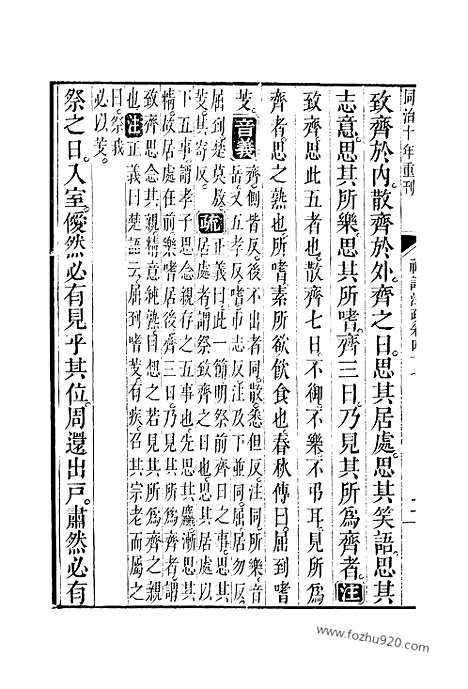 同治十年重刊
致齊於內散齊於外。齊之日。思其居處。思其笑語。思其
志意。思其所樂。思其所嗜。齊三日。乃見其所爲齊者。注
致齊思此五者也。散齊七日。不御不樂不弔耳。見所爲
齊者。思之熟也。所嗜。素所欲飲食也。春秋傳曰。屈到嗜
芰。音義齊側皆反。後不出者同。散悉但反。注同。所樂音
岳。又五孝反。嗜市志反。注及下並同。屈居勿反。
屈到楚莫敖疏正義曰。此一節明祭前齊日之事。思其
芰其寄反。居處者。謂祭致齊之日也。思其居處以
下五事。謂孝子思念親存之五事也。先思其麤。漸思其
精。故居處在前。樂嗜居後。齊三日。乃見其所爲齊者。謂
致齊思念其親。精意純熟。目想之。若見其所爲齊之親
也。注正義曰。楚語云。屈到嗜芰。有疾。召其宗老而屬之
曰。祭我
必以芰。
祭之日。入室。僾然必有見乎其位。周還出戶。肅然必有
www.fozhu920.com